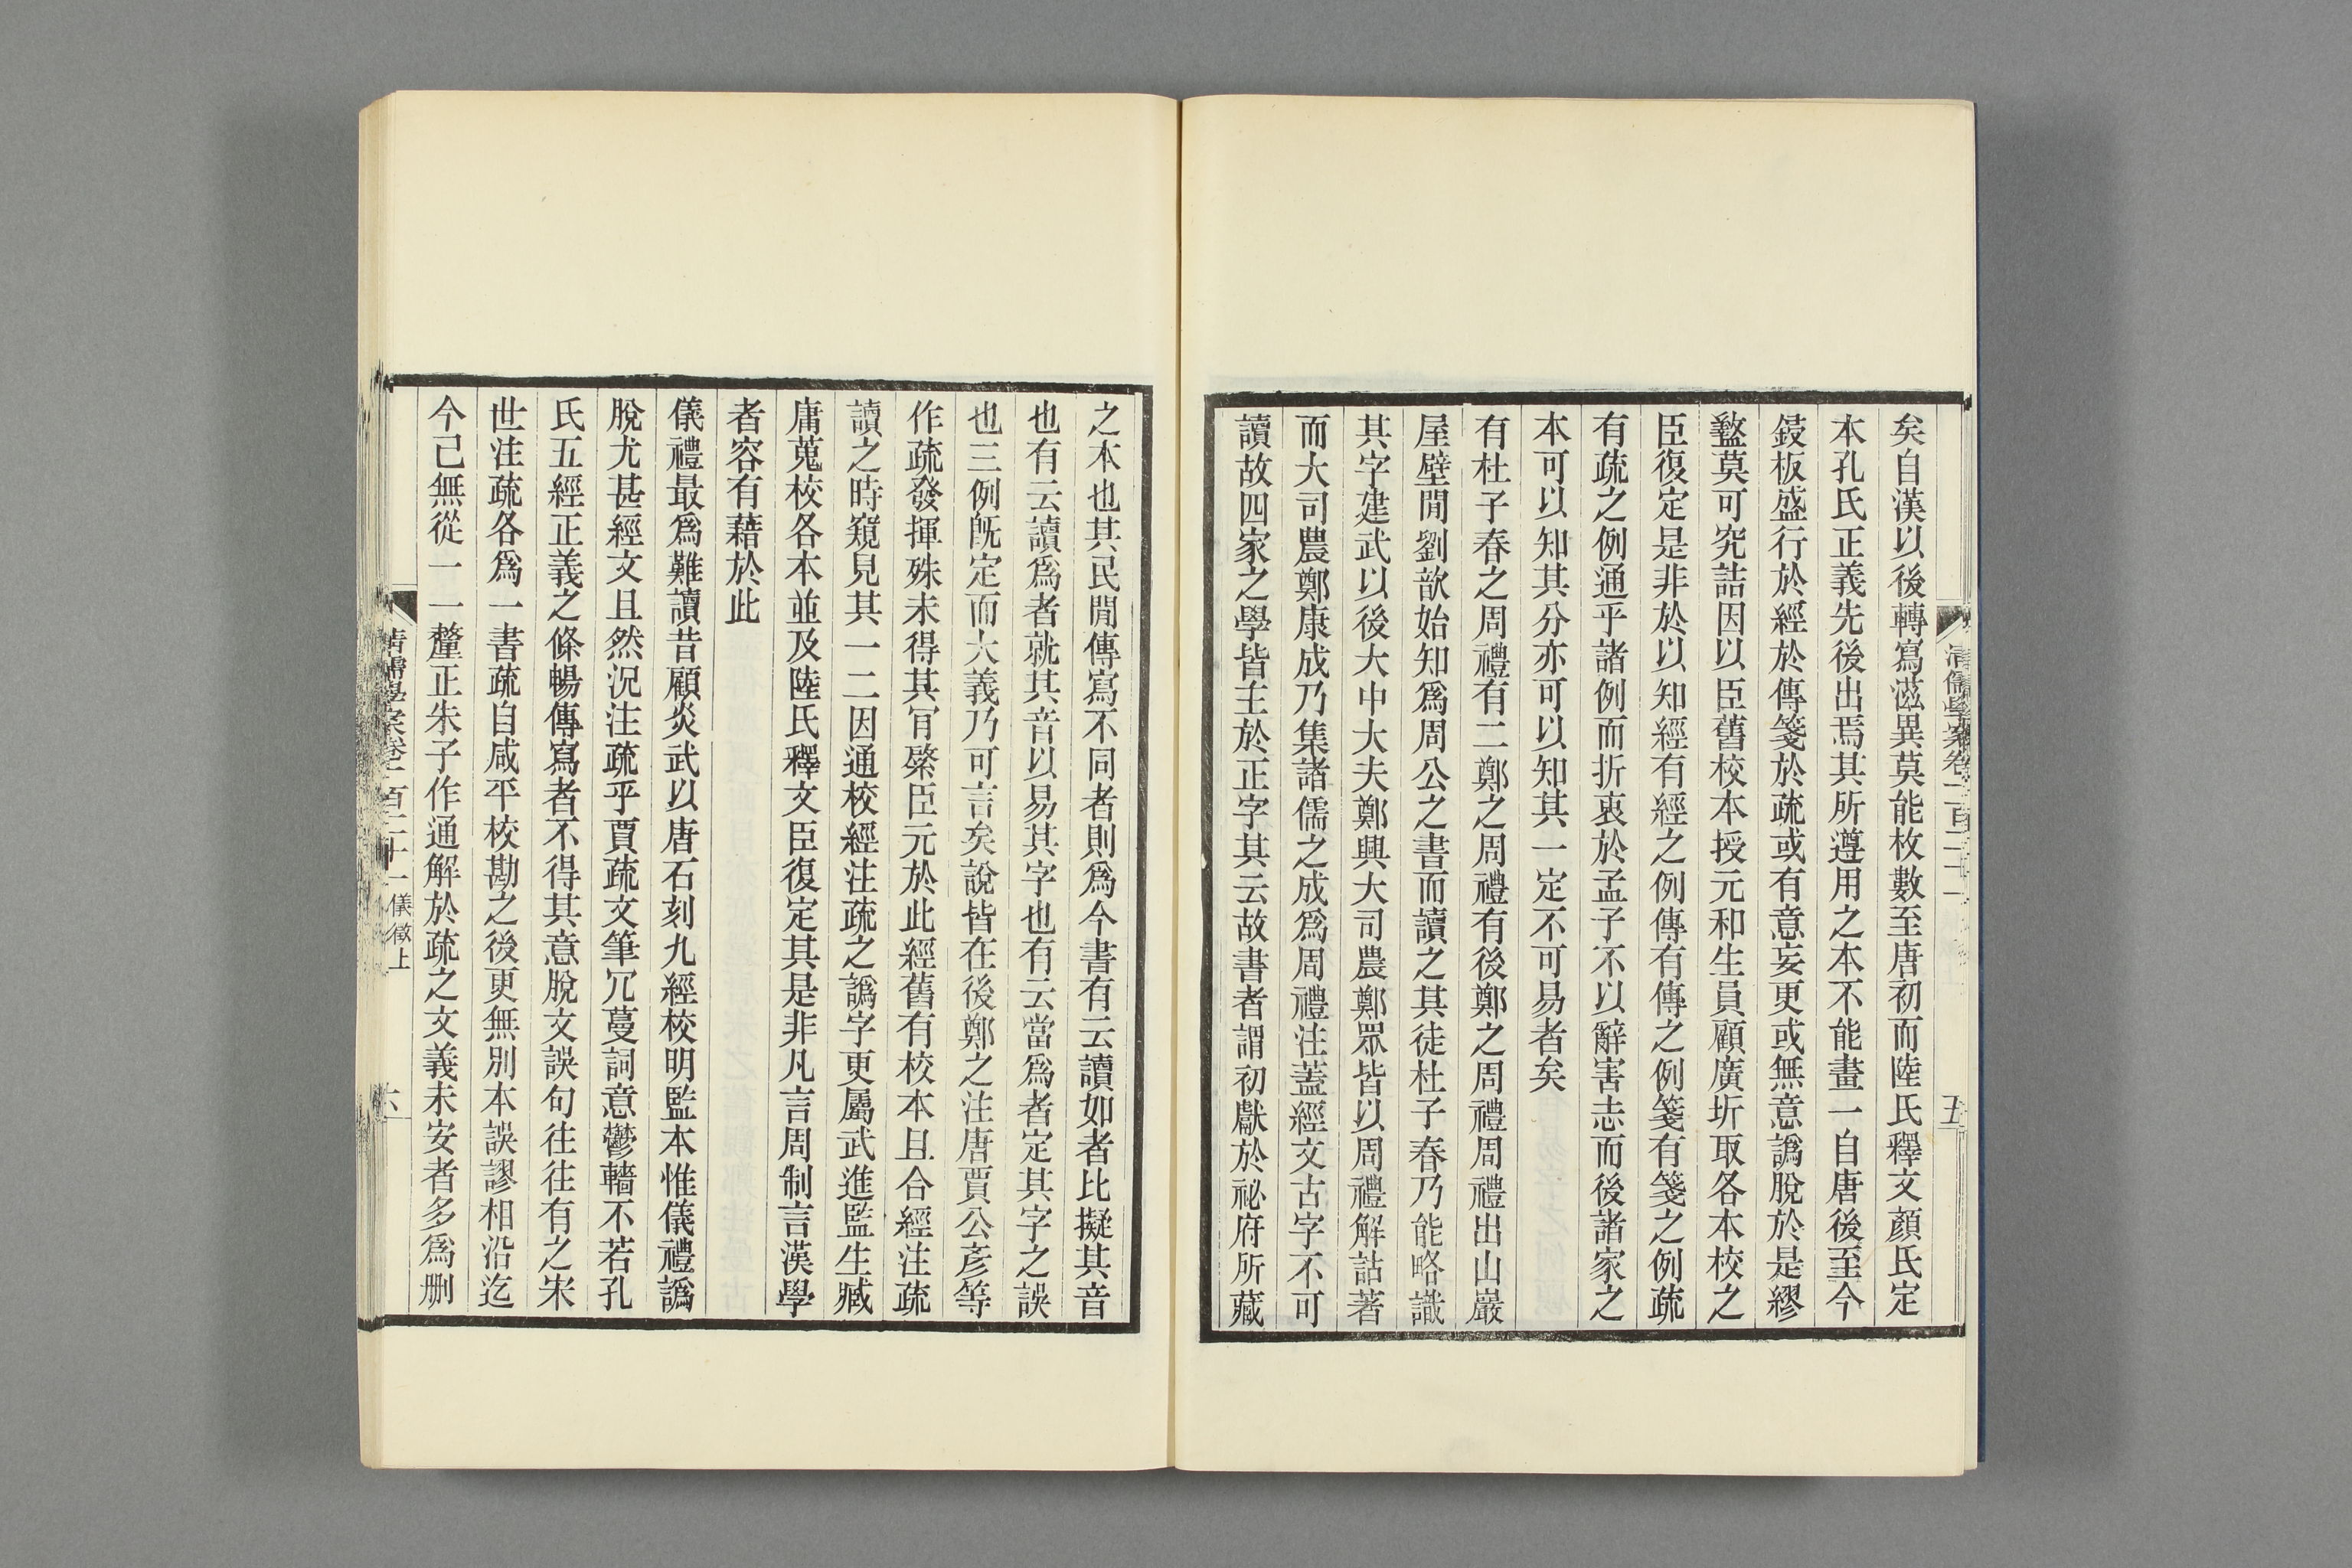 清儒學案卷一百二十一
五
矣自漢以後轉寫滋異莫能枚數至唐初而陸氏釋文顏氏定
本孔氏正義先後出焉其所遵用之本不能畫一自唐後至今
鋟板盛行於經於傳箋於疏或有意妄更或無意譌脫於是繆
盭莫可究詰因以臣舊校本授元和生員顧廣圻取各本校之
臣復定是非於以知經有經之例傳有傳之例箋有箋之例疏
有疏之例通乎諸例而折衷於孟子不以辭害志而後諸家之
本可以知其分亦可以知其一定不可易者矣
有杜子春之周禮有二鄭之周禮有後鄭之周禮周禮出山巖
屋壁閒劉歆始知爲周公之書而讀之其徒杜子春乃能略識
其字建武以後大中大夫鄭興大司農鄭眾皆以周禮解詁著
而大司農鄭康成乃集諸儒之成爲周禮注蓋經文古字不可
讀故四家之學皆主於正字其云故書者謂初獻於祕府所藏
之本也其民閒傳寫不同者則爲今書有云讀如者比擬其音
也有云讀爲者就其音以易其字也有云當爲者定其字之誤
也三例既定而大義乃可言矣說皆在後鄭之注唐賈公彥等
作疏發揮殊未得其肎綮臣元於此經舊有校本且合經注疏
讀之時窺見其一二因通校經注疏之譌字更屬武進監生臧
庸蒐校各本並及陸氏釋文臣復定其是非凡言周制言漢學
者容有藉於此
儀禮最爲難讀昔顧炎武以唐石刻九經校明監本惟儀禮譌
脫尤甚經文且然況注疏乎賈疏文筆冗蔓詞意鬱轖不若孔
氏五經正義之條暢傳寫者不得其意脫文誤句往往有之宋
世注疏各爲一書疏自咸平校勘之後更無別本誤謬相沿迄
今已無從一一釐正朱子作通解於疏之文義未安者多爲刪
清儒學案卷一百二十一 儀徵上
六